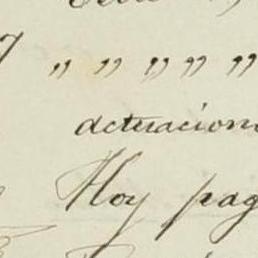 7 " " " " "
actuacion
Hoy pag